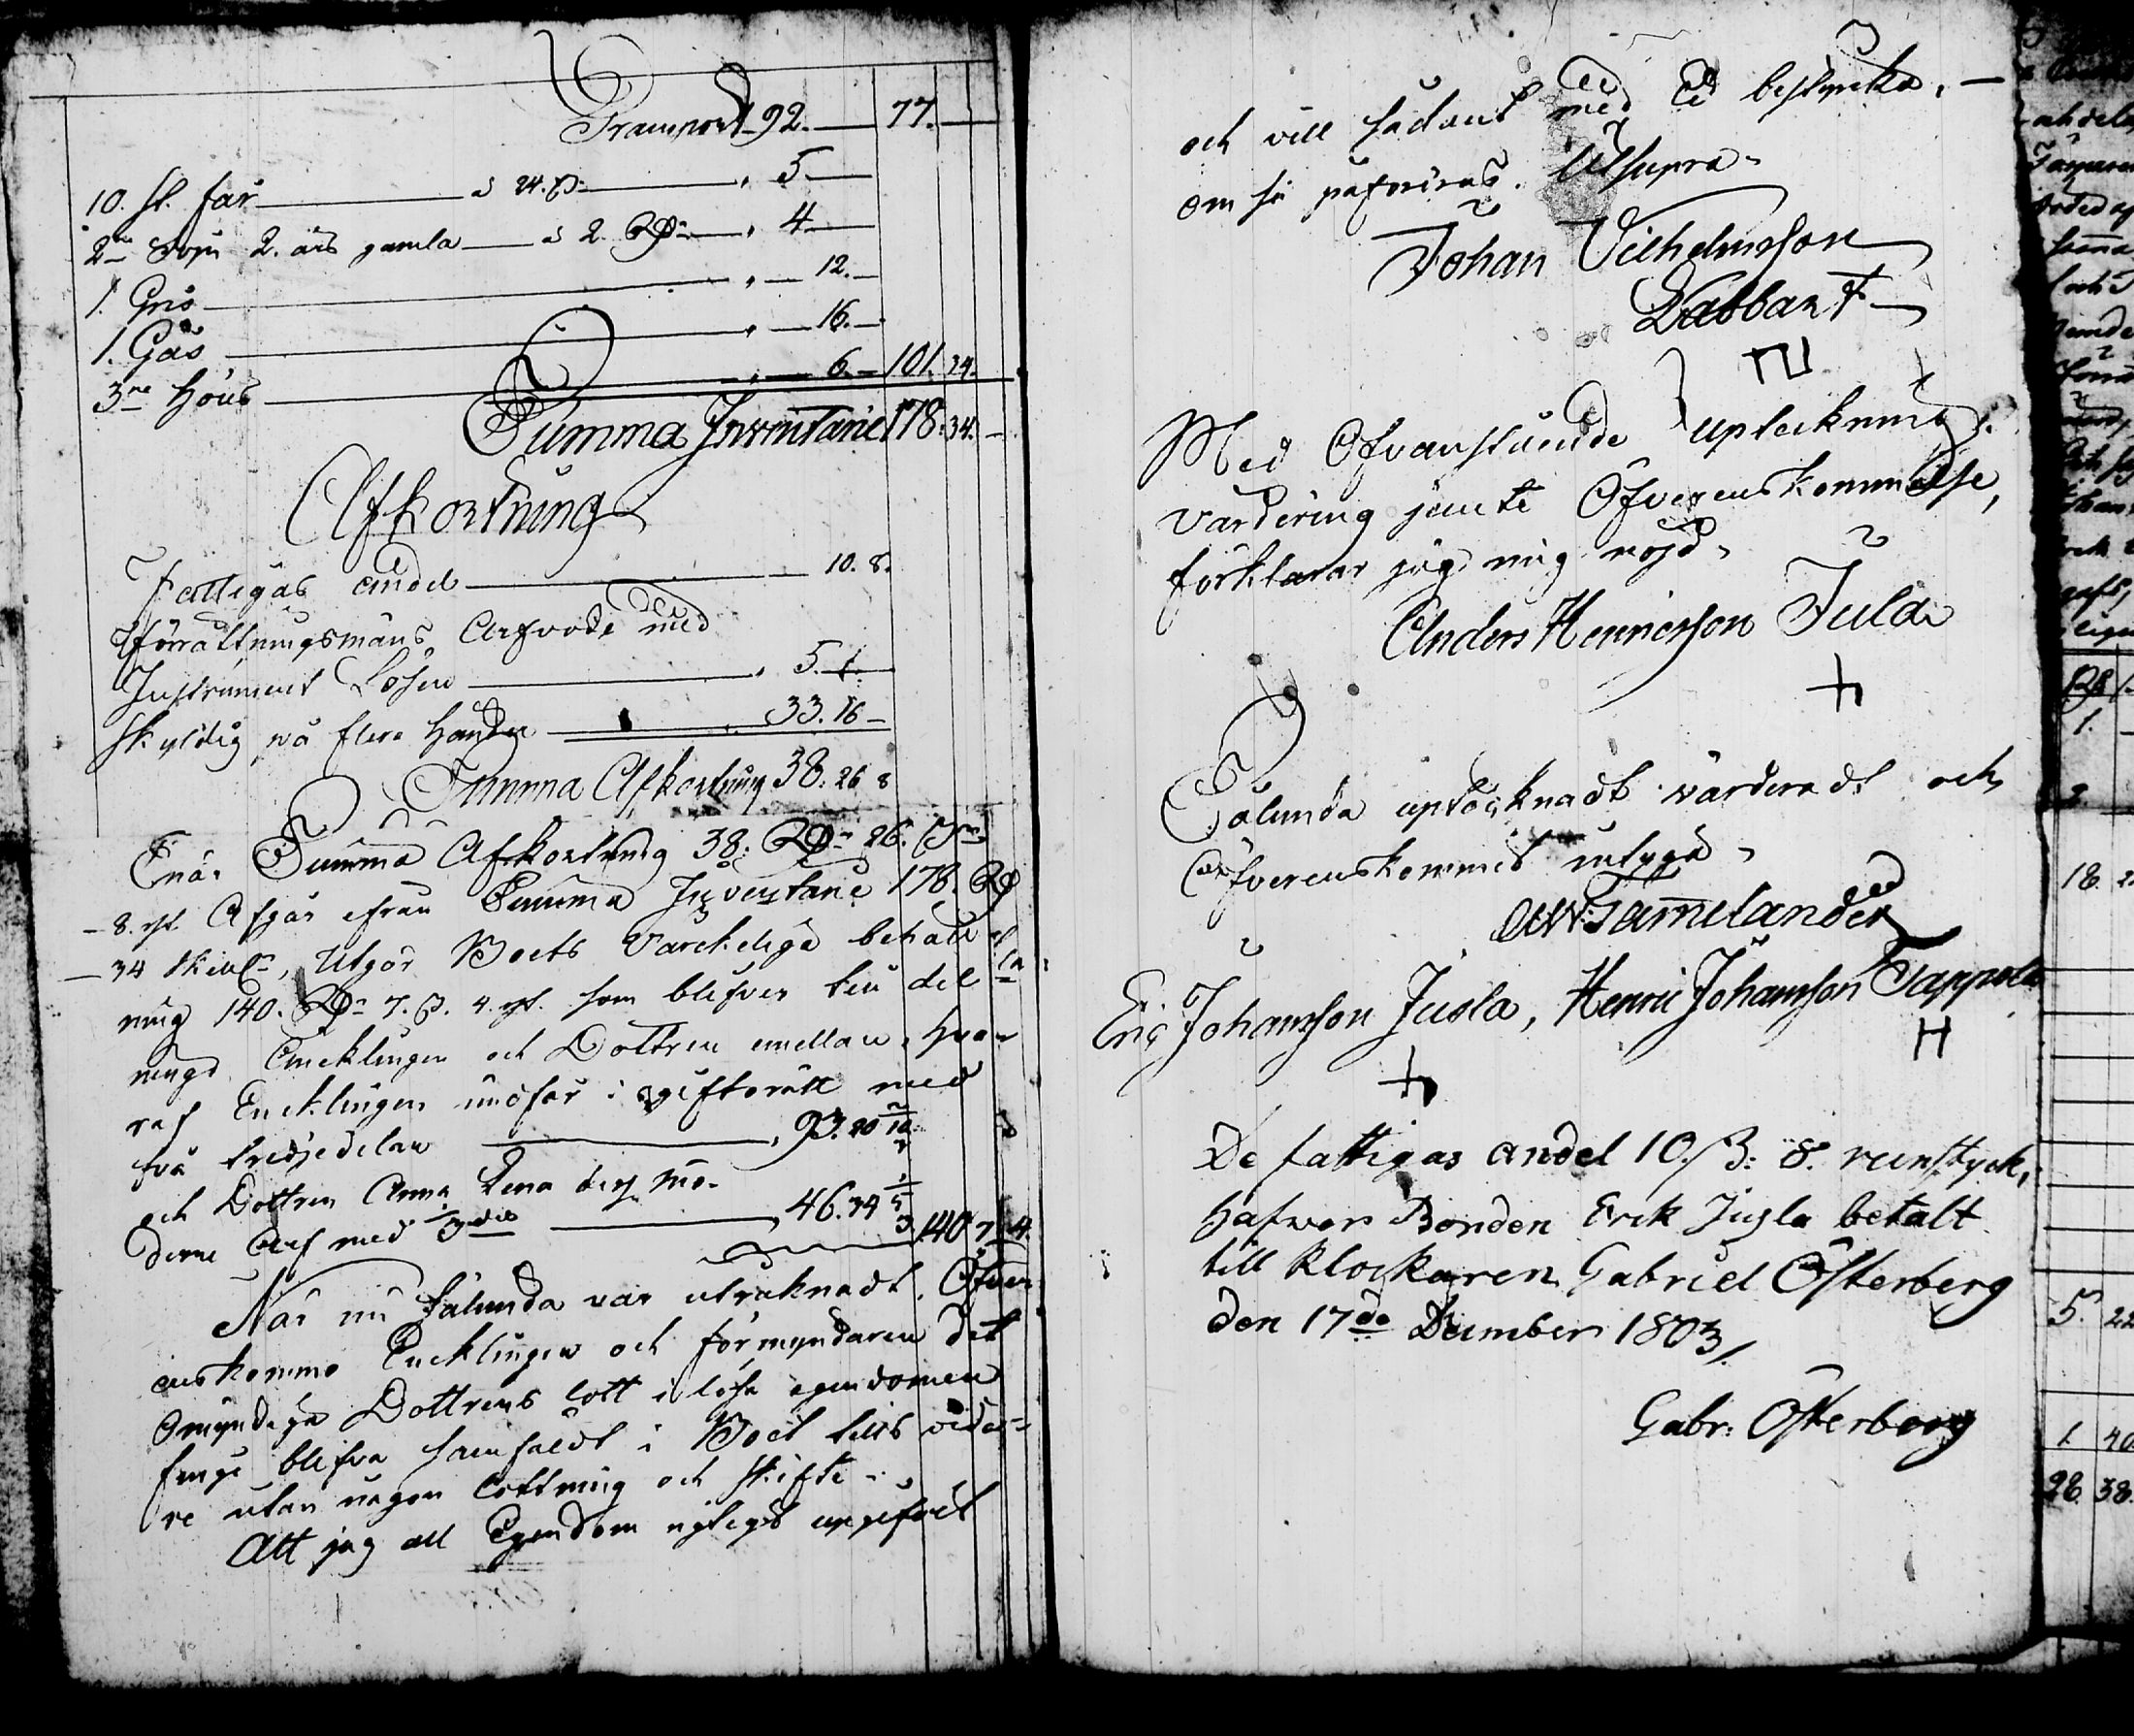 Transport 92. — 77. —
10. st. får — à 24. ß — " 5 —
2ne 2. års gamla — à 2 Rd — " 4 —
1. Gris — " — 12. —
1. Gås — " — 16. —
3ne Höns — " — 6. — 101. 34. —
Summa Inventarie 178. 34. —
Afkortning
Fattigas andel — 10. 8.
Förrättningsmäns Arfvode med
Instrument Lösen — " 5. —
Skyldig på flere Händer — " 33. 16 —
Summa Afkortning 38. 26 8
Enär Summa Afkortning 38: Rd 26. ß
8. rst. Afgår ifrån Summa Inventarie 178. Rd
34 skill, Utgör Boets Värckeliga behåll
ning 140. Rd 7. ß. 4. rst. som blifver till del
nings Encklingen och Dottren emellan, hva-
raf Encklingen undfår i giftorätt med
två tredjedelar — " 93. 20
och Dottren Anna Lena dess mö-
derne Arf med 1/3del — " 46. 34 140 7 4.
När nu Sålunda var uträknadt, Öfver
enskommo Encklingen och förmyndaren det
omyndiga Dottrens lott i lösa egendomen
finge blifva samfäldt i Boet tills vida-
re utan någon Lottning och skifte.
Att jag all Egendom upgifvit
och vill sådant med Ed bestyrcka, —
om så påfordras. Ut supra.
Johan Vilhelmsson
Dabbart
Med Ofvanstående uptekning
värdering jemte Öfverenskommelse,
förklarar jag mig nöjd.
Anders Henricsson Juld
Sålunda uptecknadt värderadt och
Öfverenskommit intyga.
Tamelander
Eric Johansson Jusla, Henric Johansson Tappola
H
De fattigas andel 10. ß: 8. runstyck,
hafwer Bonden Erik Jusla betalt
till klockaren Gabriel Österberg
den 17de December 1803.
Gabr: Österberg
18
5. 22
1. 40
28. 38.